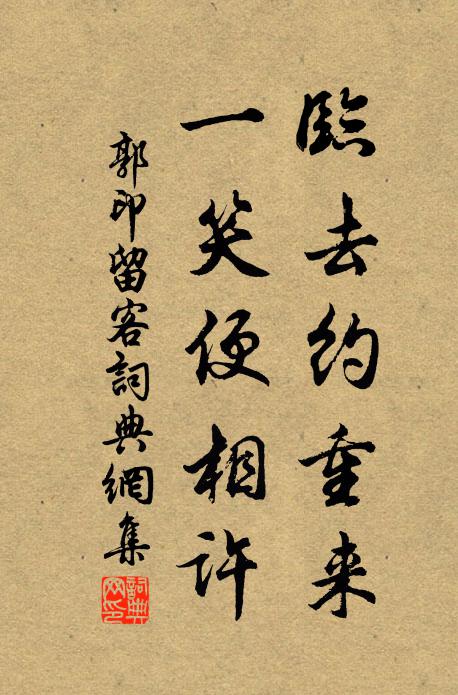 臨去約重来
一笑便相許
郭印留客詞典網集
詞典网印